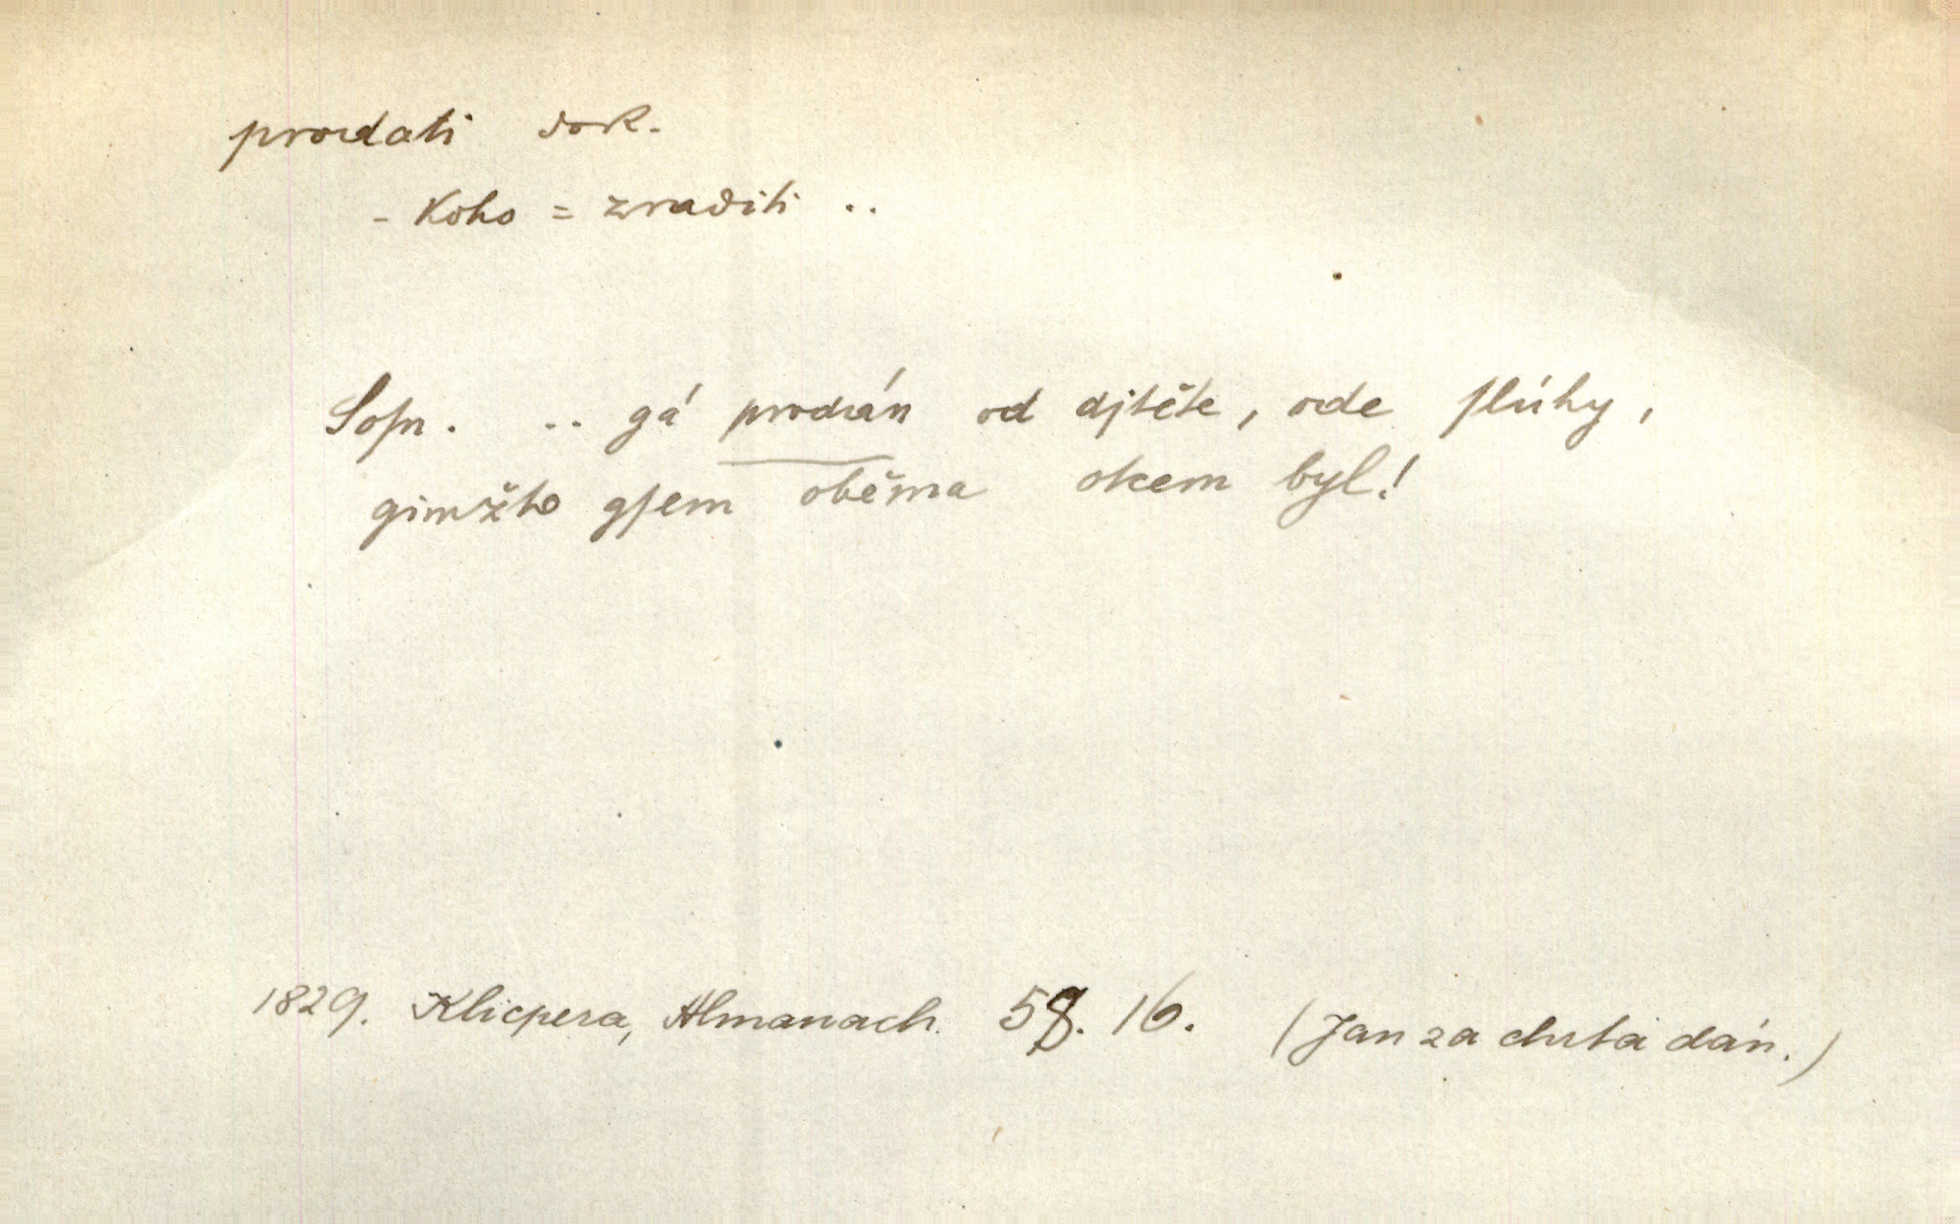 prodati dok.
- Koho = zraditi ..
Sofn. .. gá prodán od djtěte, ode sluhy,
gimžto gsem oběma okem byl!
1829. Klicpera, Almanach. 16. (Jan za chrta dán.)